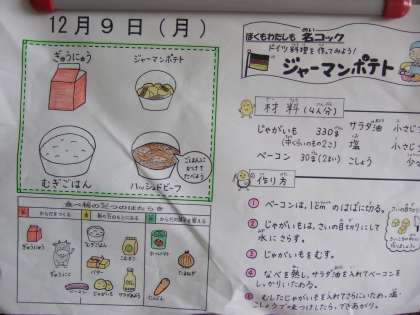 12月9日(月)
ぎゅうにゅう
ジャーマンポテト
むぎごはん
ハッシュドビーフ
ごはんに
かけて
たべよう
食べ物の三つのはたらき
からだをつくる
ぎゅうにく
むぎごはん
バター
こむぎこ
ベーコン
じゃがいも
サラダあぶら
たまねぎ
にんじん
ぼくもわたしも 名コック
ドイツ料理を作ってみよう!
ジャーマンポテト
材料(4人分)
じゃがいも 330g サラダ油 小さじ
(中くらいのもの2こ) 塩 小さじ
ベーコン 30g(2まい) こしょう 少
作り方
1 ベーコンは、1cmのはばに切る。
2 じゃがいもは、さいの目切りにして
水にさらす。
3 じゃがいもをむす。
4 なべを熱し、サラダ油を入れてベーコンを
しっかりいためる。
5 むしたじゃがいもを入れてさらにいため、塩・
こしょうで味をつけしたら、できあがり。